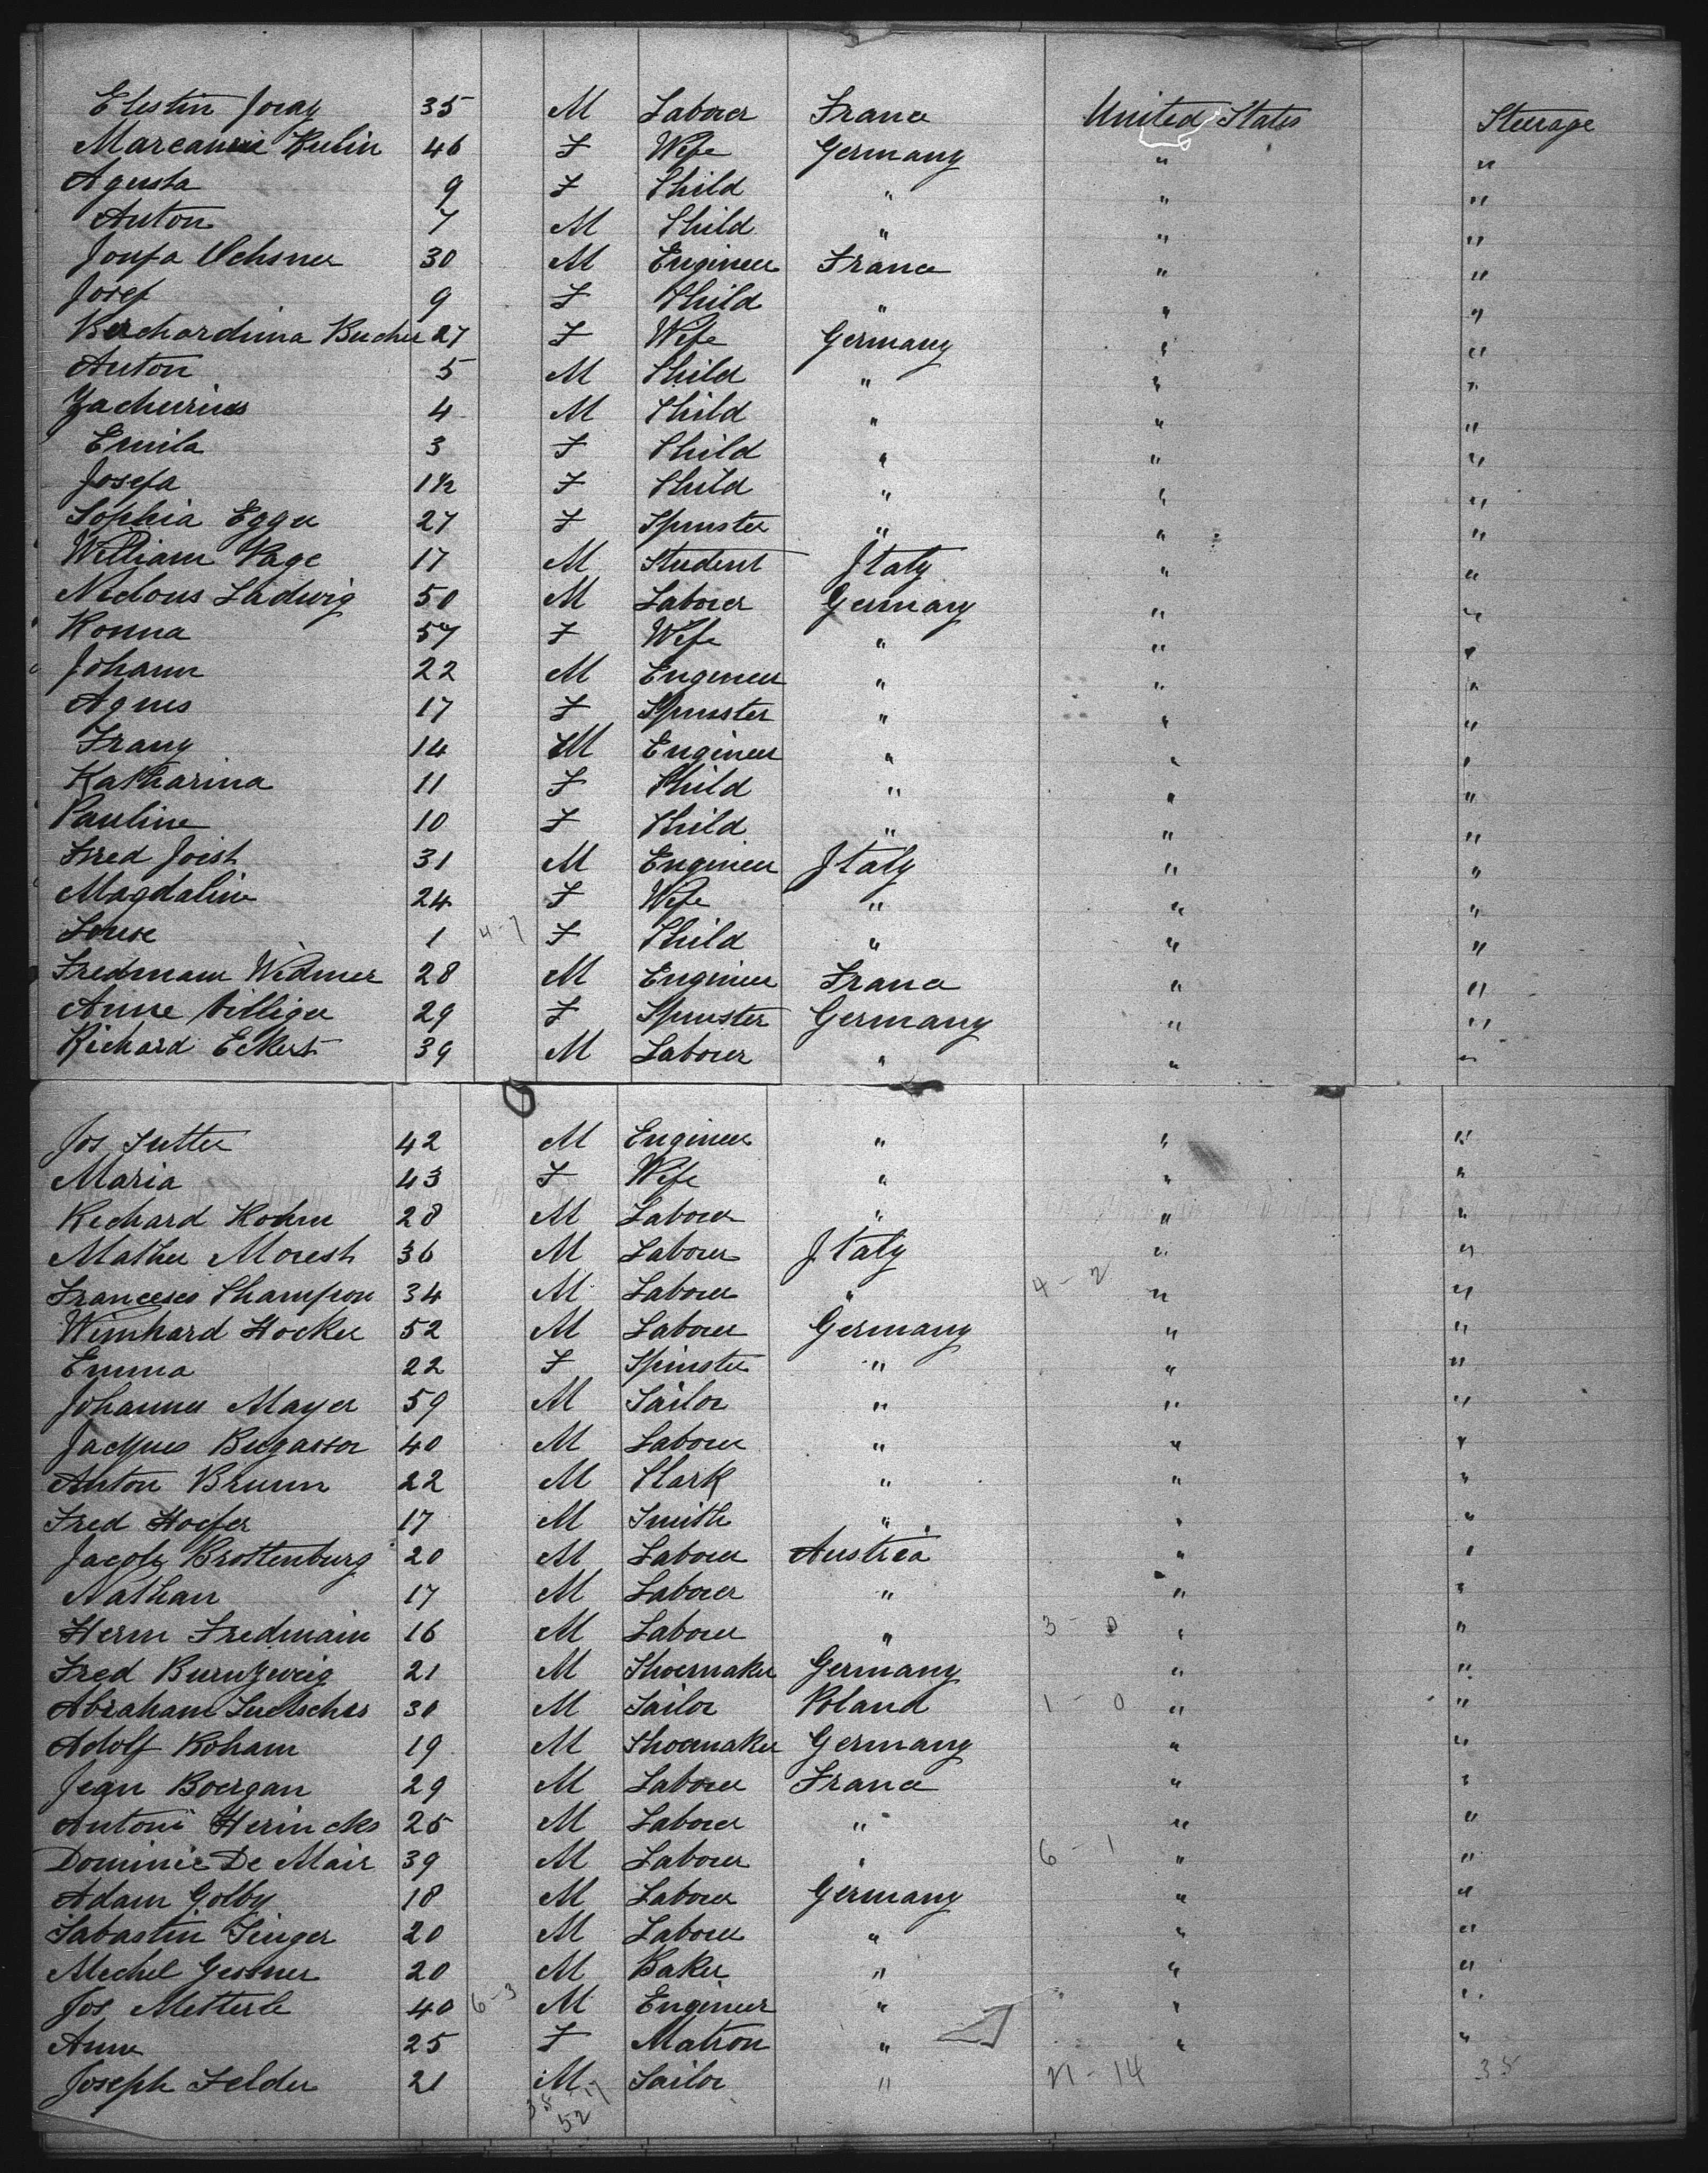 Elestin Joray 35 M Laborer France United States Steerage
Marcannie Kulin 46 F Wife Germany " "
Agusta 9 F Child " " "
Anton 7 M Child " " "
Josefa Ochsner 30 M Engineer France " "
Josef 9 F Child " " "
Berchardina Bucher 27 F Wife Germany " "
Anton 5 M Child " " "
Zacherius 4 M Child " " "
Emila 3 F Child " " "
Josefa 1½ F Child " " "
Sophia Egger 27 F Spinster " " "
William Page 17 M Student Italy " "
Nedous Ladwig 50 M Laborer Germany " "
Konna 57 F Wife " " "
Johann 22 M Engineer " " "
Agnes 17 F Spinster " " "
Franz 14 M Engineer " " "
Katharina 11 F Child " " "
Pauline 10 F Child " " "
Fred Joist 31 M Engineer Italy " "
Magdaline 24 F Wife " " "
Louise 1 4-7 F Child " " "
Fredmann Widmer 28 M Engineer France " "
Anne Villiger 29 F Spinster Germany " "
Richard Eckert 39 M Laborer " " "
Jos Sutter 42 M Engineer " " "
Maria 43 F Wife " " "
Richard Kohm 28 M Laborer " " "
Mather Morest 36 M Laborer Italy " "
Francesco Champon 34 M Laborer " 4-2 " "
Weinhard Hocker 52 M Laborer Germany " "
Emma 22 F Spinster " " "
Johannes Mayer 59 M Tailor " " "
Jacques Bugassor 40 M Laborer " " "
Anton Brunn 22 M Clark " " "
Fred Hoefer 17 M Smith " " "
Jacob Brottenburg 20 M Laborer Austria " "
Nathan 17 M Laborer " " "
Herm Fredmain 16 M Laborer " 3-0 " "
Fred Burnzweig 21 M Shoemaker Germany " "
Abraham Luetschers 30 M Tailor Poland 1-0 " "
Adolf Koham 19 M Shoemaker Germany " "
Jean Boergan 29 M Laborer France " "
Antoni Herincks 25 M Laborer " " "
Dominic De Mair 39 M Laborer " 6-1 " "
Adam Golby 18 M Laborer Germany " "
Sabastin Singer 20 M Laborer " " "
Mechel Gessner 20 M Baker " " "
Jos Metterle 40 6-3 M Engineer " " "
Anna 25 F Matron " " "
Joseph Felder 21 M Tailor " 21-14 35
35 17
52